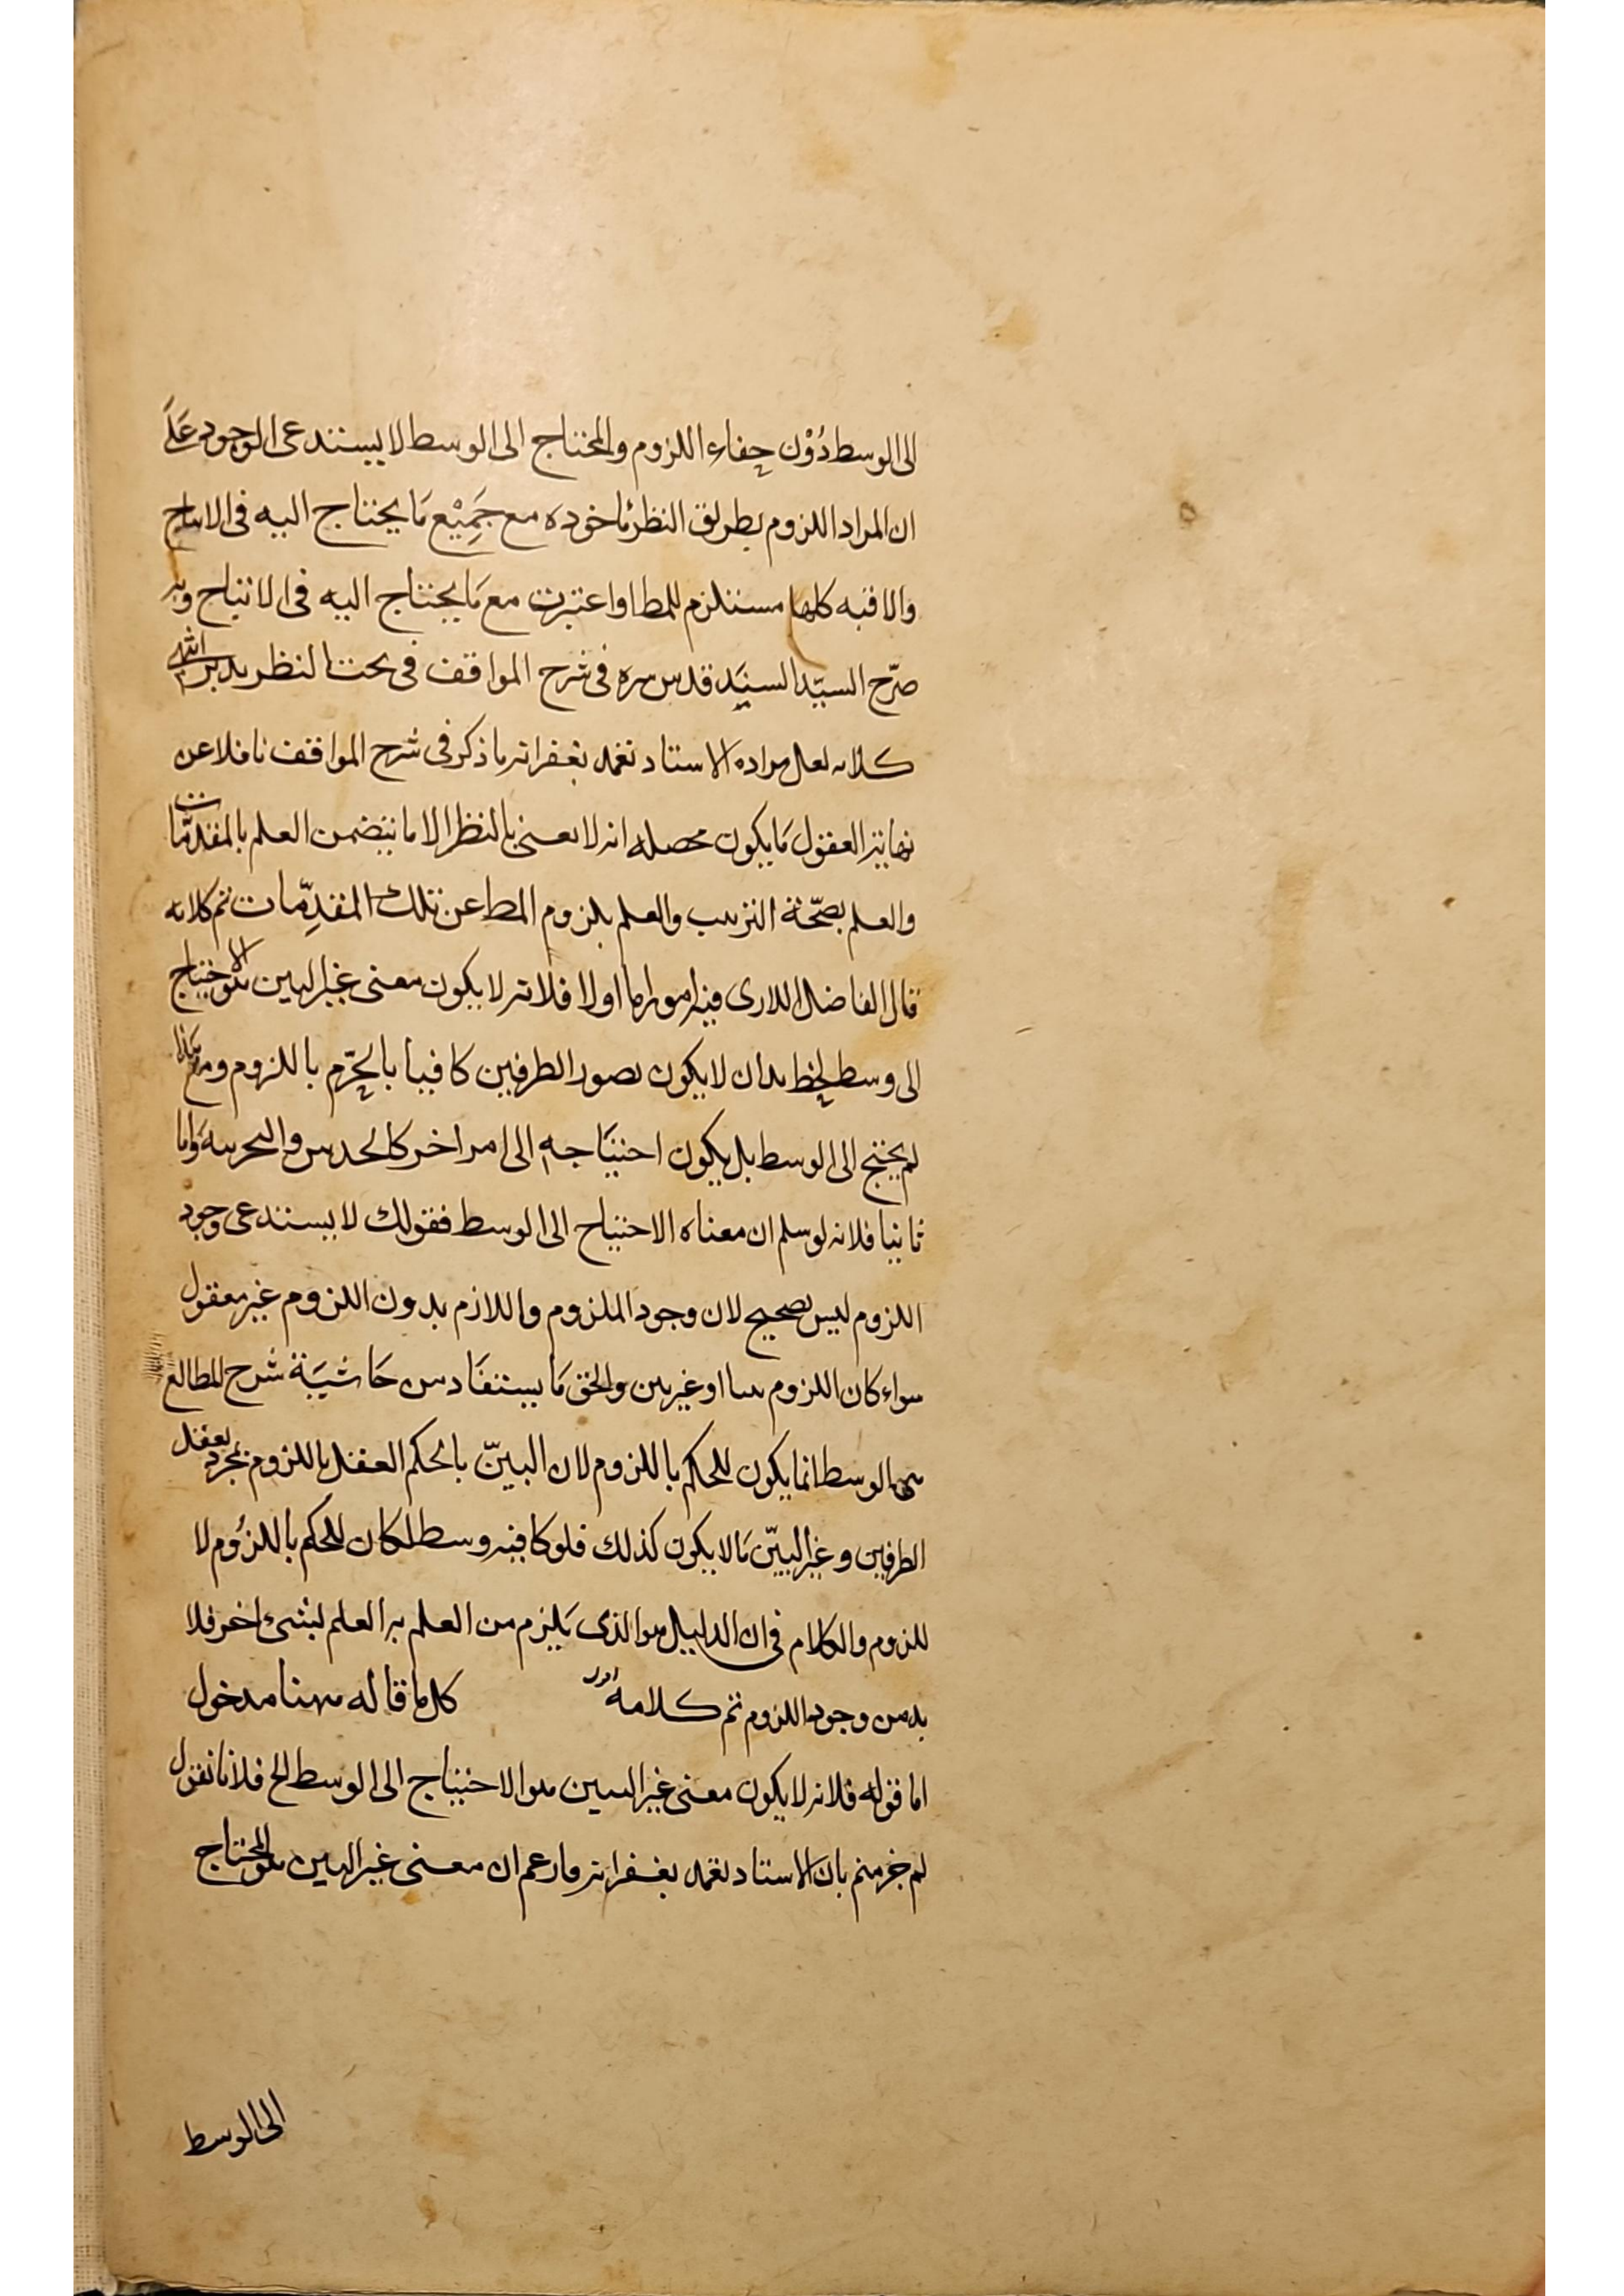 الى الوسط دُوْن خفاء اللزوم والمحتاج الى الوسط لا يستدعى الوجود عَلَى
ان المراد اللزوم بطريق النظر مَاخوده مع جَمِيْع مَا يحتاج اليه فى الانتاج
والاقيه كلها مستلزم للمط اوا عتبرت مع مَا يحتاج اليه فى الانتاج وبه
صرّح السيّد السنِيَد قدس سره فى شرح المواقف فى بحث النظر تدبر انتهى
كلامه لعل مراده الاستاد تغمد بغفرانه ما ذكر فى شرح المواقف ناقلا عن
نهاية العقول مَا يكون محصله انه لا نعنى بالنظر الا ما يتضمن العلم بالمقدّمات
والعلم بصحّة الترتيب والعلم بلزوم المط عن تلك المقدِمّات تم كلامه
قال الفاضل اللارى فيه امور اما اولا فلانه لا يكون معنى غير البين هو الاحتياج
الى وسط بل ان لا يكون تصور الطرفين كافيا بالجزم باللزوم
لم يحتج الى الوسط بل يكون احتيَاجه الى امر اخر كالحدس والتجربة وَاما
ثانيا فلانه لو سلم ان معناه الاحتياج الى الوسط فقولك لا يستدعى وجود
اللزوم ليس بصحيح لان وجود الملزوم واللازم بدون اللزوم غير معقول
سواء كان اللزوم بينا او غير بين والحق مَا يستفَاد من حَاشيَة شرح المطالع
من الوسط انما يكون للحكم باللزوم لان البينّ بالحكم العقل باللزوم بمجرد تعقل
الطرفين وغير البينّ مَا لا يكون كذلك فلو كا فيه وسط لكان للحكم باللزُوم لا
للزوم والكلام فى ان الدليل هو الذى يَلزم من العلم به العلم لبشىء اخر فلا
بد من وجود اللزوم تم كلامه اقول كل ما قاله هنا مدخول
اما قوله فلانه لا يكون معنى غير البين هو الاحتياج الى الوسط الخ فلانا نقول
لم جزمتم بان الاستاد تغمد بغفرانه ما زعم ان معنى غير البين هو المحتاج
الى الوسط